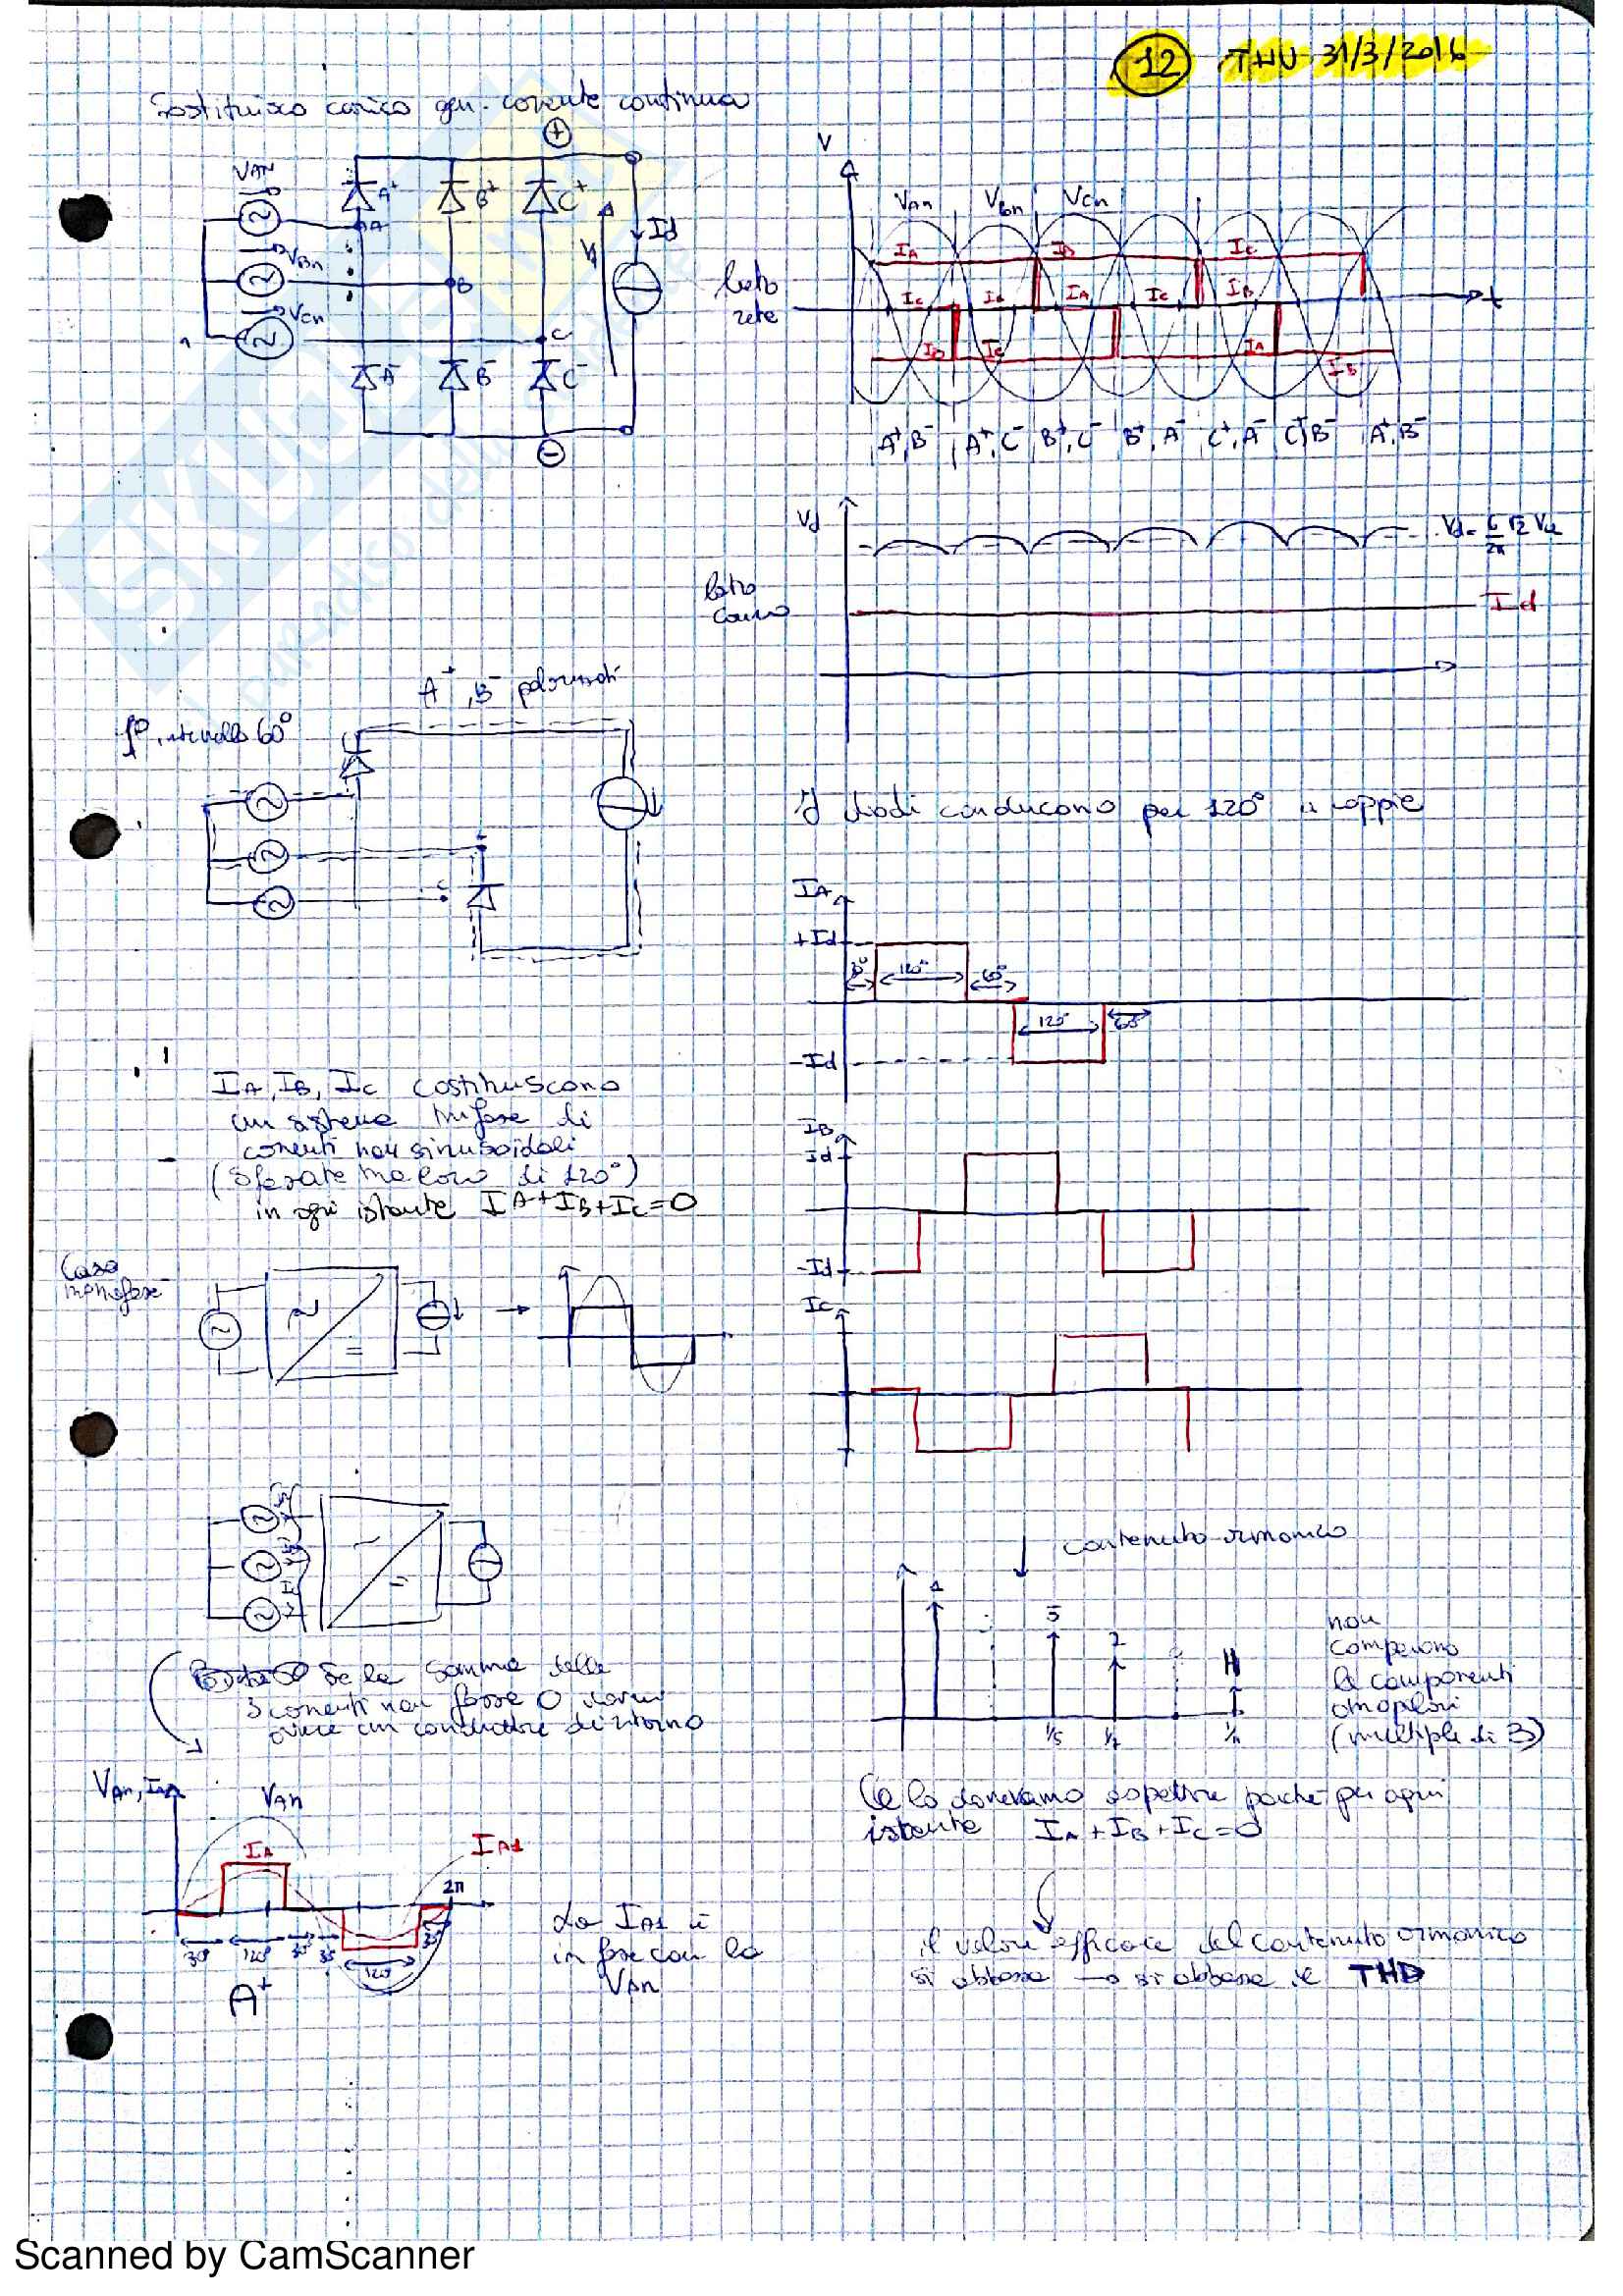 12 THU 31/3/2016
Sostituisco carico gen. corrente continua
+
VAN
A+ B+ C+
A
Id
VBn
B
Vd
VCn
C
A- B- C-
-
V
VAn VBn VCn
IA IB IC
lato
rete
IC IB IA IC IB
t
IB IC IA IB
A+,B- A+,C- B+,C- B+,A- C+,A- C+,B- A+,B-
Vd
Vd= 6/2π √2 VLL
lato
carico
Id
A+, B- polarizzati
1° intervallo 60°
I diodi conducono per 120° a coppie
IA
+Id
30° 120° 60°
120° 60°
-Id
IA, IB, IC costituiscono
un sistema trifase di
correnti non sinusoidali
(sfasate tra loro di 120°)
in ogni istante IA+IB+IC=0
IB
Id
-Id
Caso
monofase
IC
contenuto armonico
1 5 7 11
1/5 1/7 1/11
non
compaiono
le componenti
omopolari
(multiple di 3)
Se la somma delle
3 correnti non fosse 0 dovrei
avere un conduttore di ritorno
Ce lo dovevamo aspettare poiché per ogni
istante IA+IB+IC=0
VAn, IA
VAn
IA
IA1
2π
30° 120° 30° 30° 120° 30°
A+
La IA1 è
in fase con la
VAn
il valore efficace del contenuto armonico
si abbassa → si abbassa il THD
Scanned by CamScanner